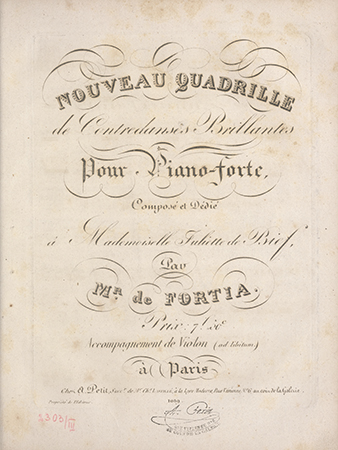 NOUVEAU QUADRILLE
de Contredanses Brillantes
Pour Piano-forte,
Composé et Dédié
à Mademoiselle Juliette de Bief,
Par
Mr. de FORTIA.
Prix: 7f 50c
Accompagnement de Violon (ad libitum)
à Paris
Chez A. Petit, Succr. de
Propriété de l'Editeur.